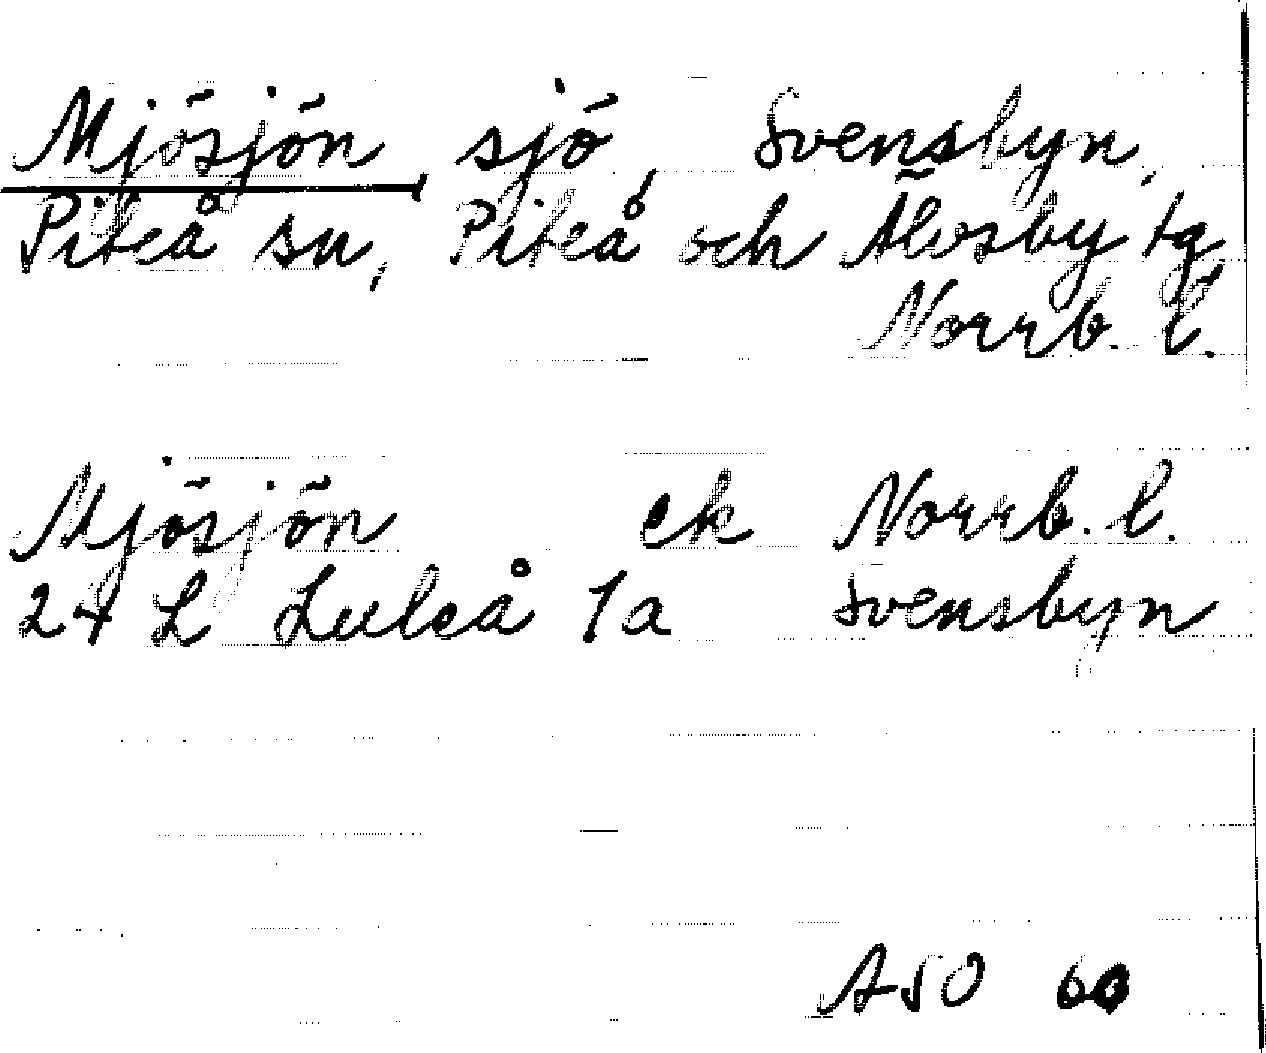 Mjösjön, sjö, Svensbyn,
Piteå sn, Piteå och Älvsby tg,
Norrb. l.
Mjösjön ek Norrb. l.
24 L Luleå 1a Svensbyn
ASO 60